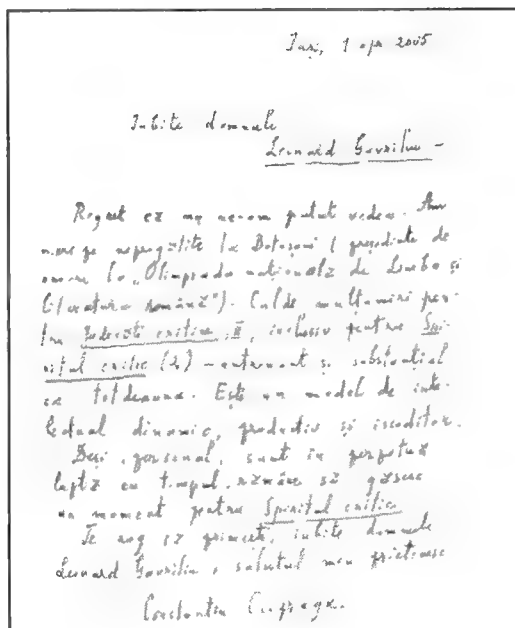 Iași, 1 apr 2005
Iubite domnule
Leonard Gavriliu -
Regret că nu ne-am putut vedea. Am
mers pe nepregătite la Botoșani (președinte de
onoare la „Olimpiada națională de Limba și
literatura română"). Calde mulțumiri pen-
tru Judecăți critice II, inclusiv pentru Spi-
ritul critic (2) - antrenant și substanțial
ca totdeauna. Ești un model de inte-
lectual dinamic, productiv și iscoditor.
Deși, personal, sunt în perpetuă
luptă cu timpul, rămâne să găsesc
un moment pentru Spiritul critic
Te rog să primești, iubite domnule
Leonard Gavriliu, salutul meu prietenesc
Constantin Ciopraga.